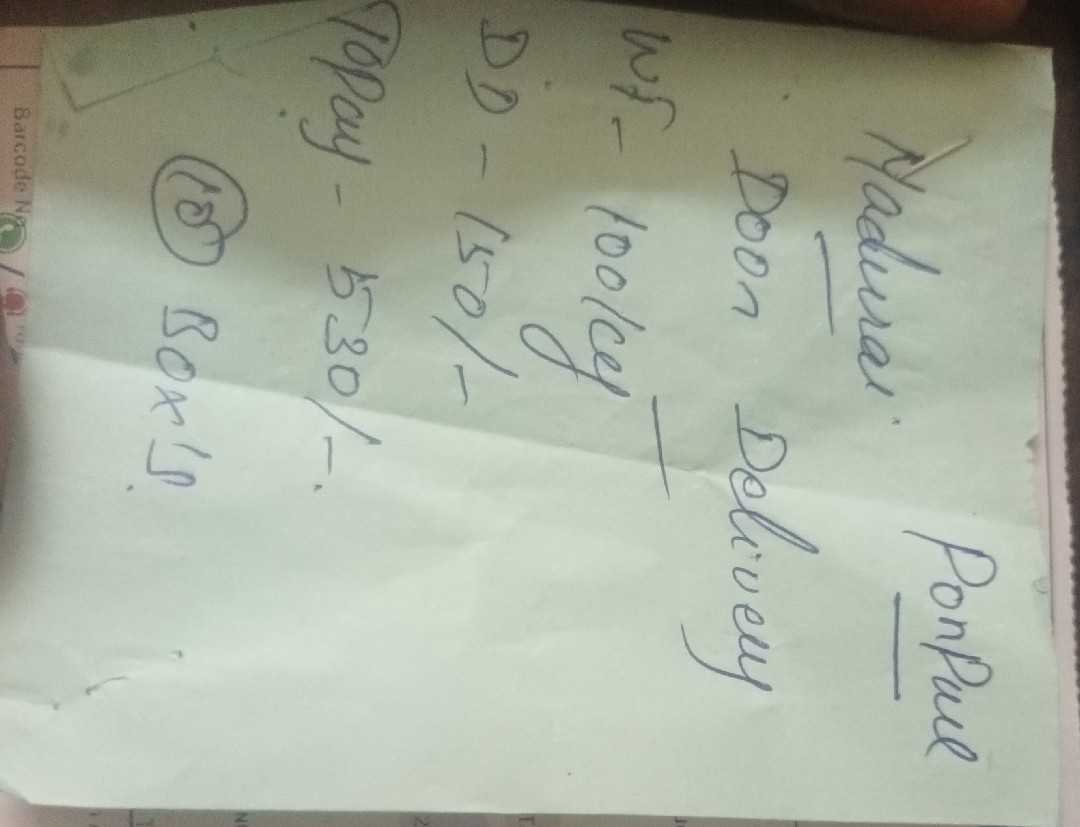 Madurai PonPure
Doon Delivery
Wt - 100kg
DD - 150/-
Topay - 530/-
10 Box's
Barcode N